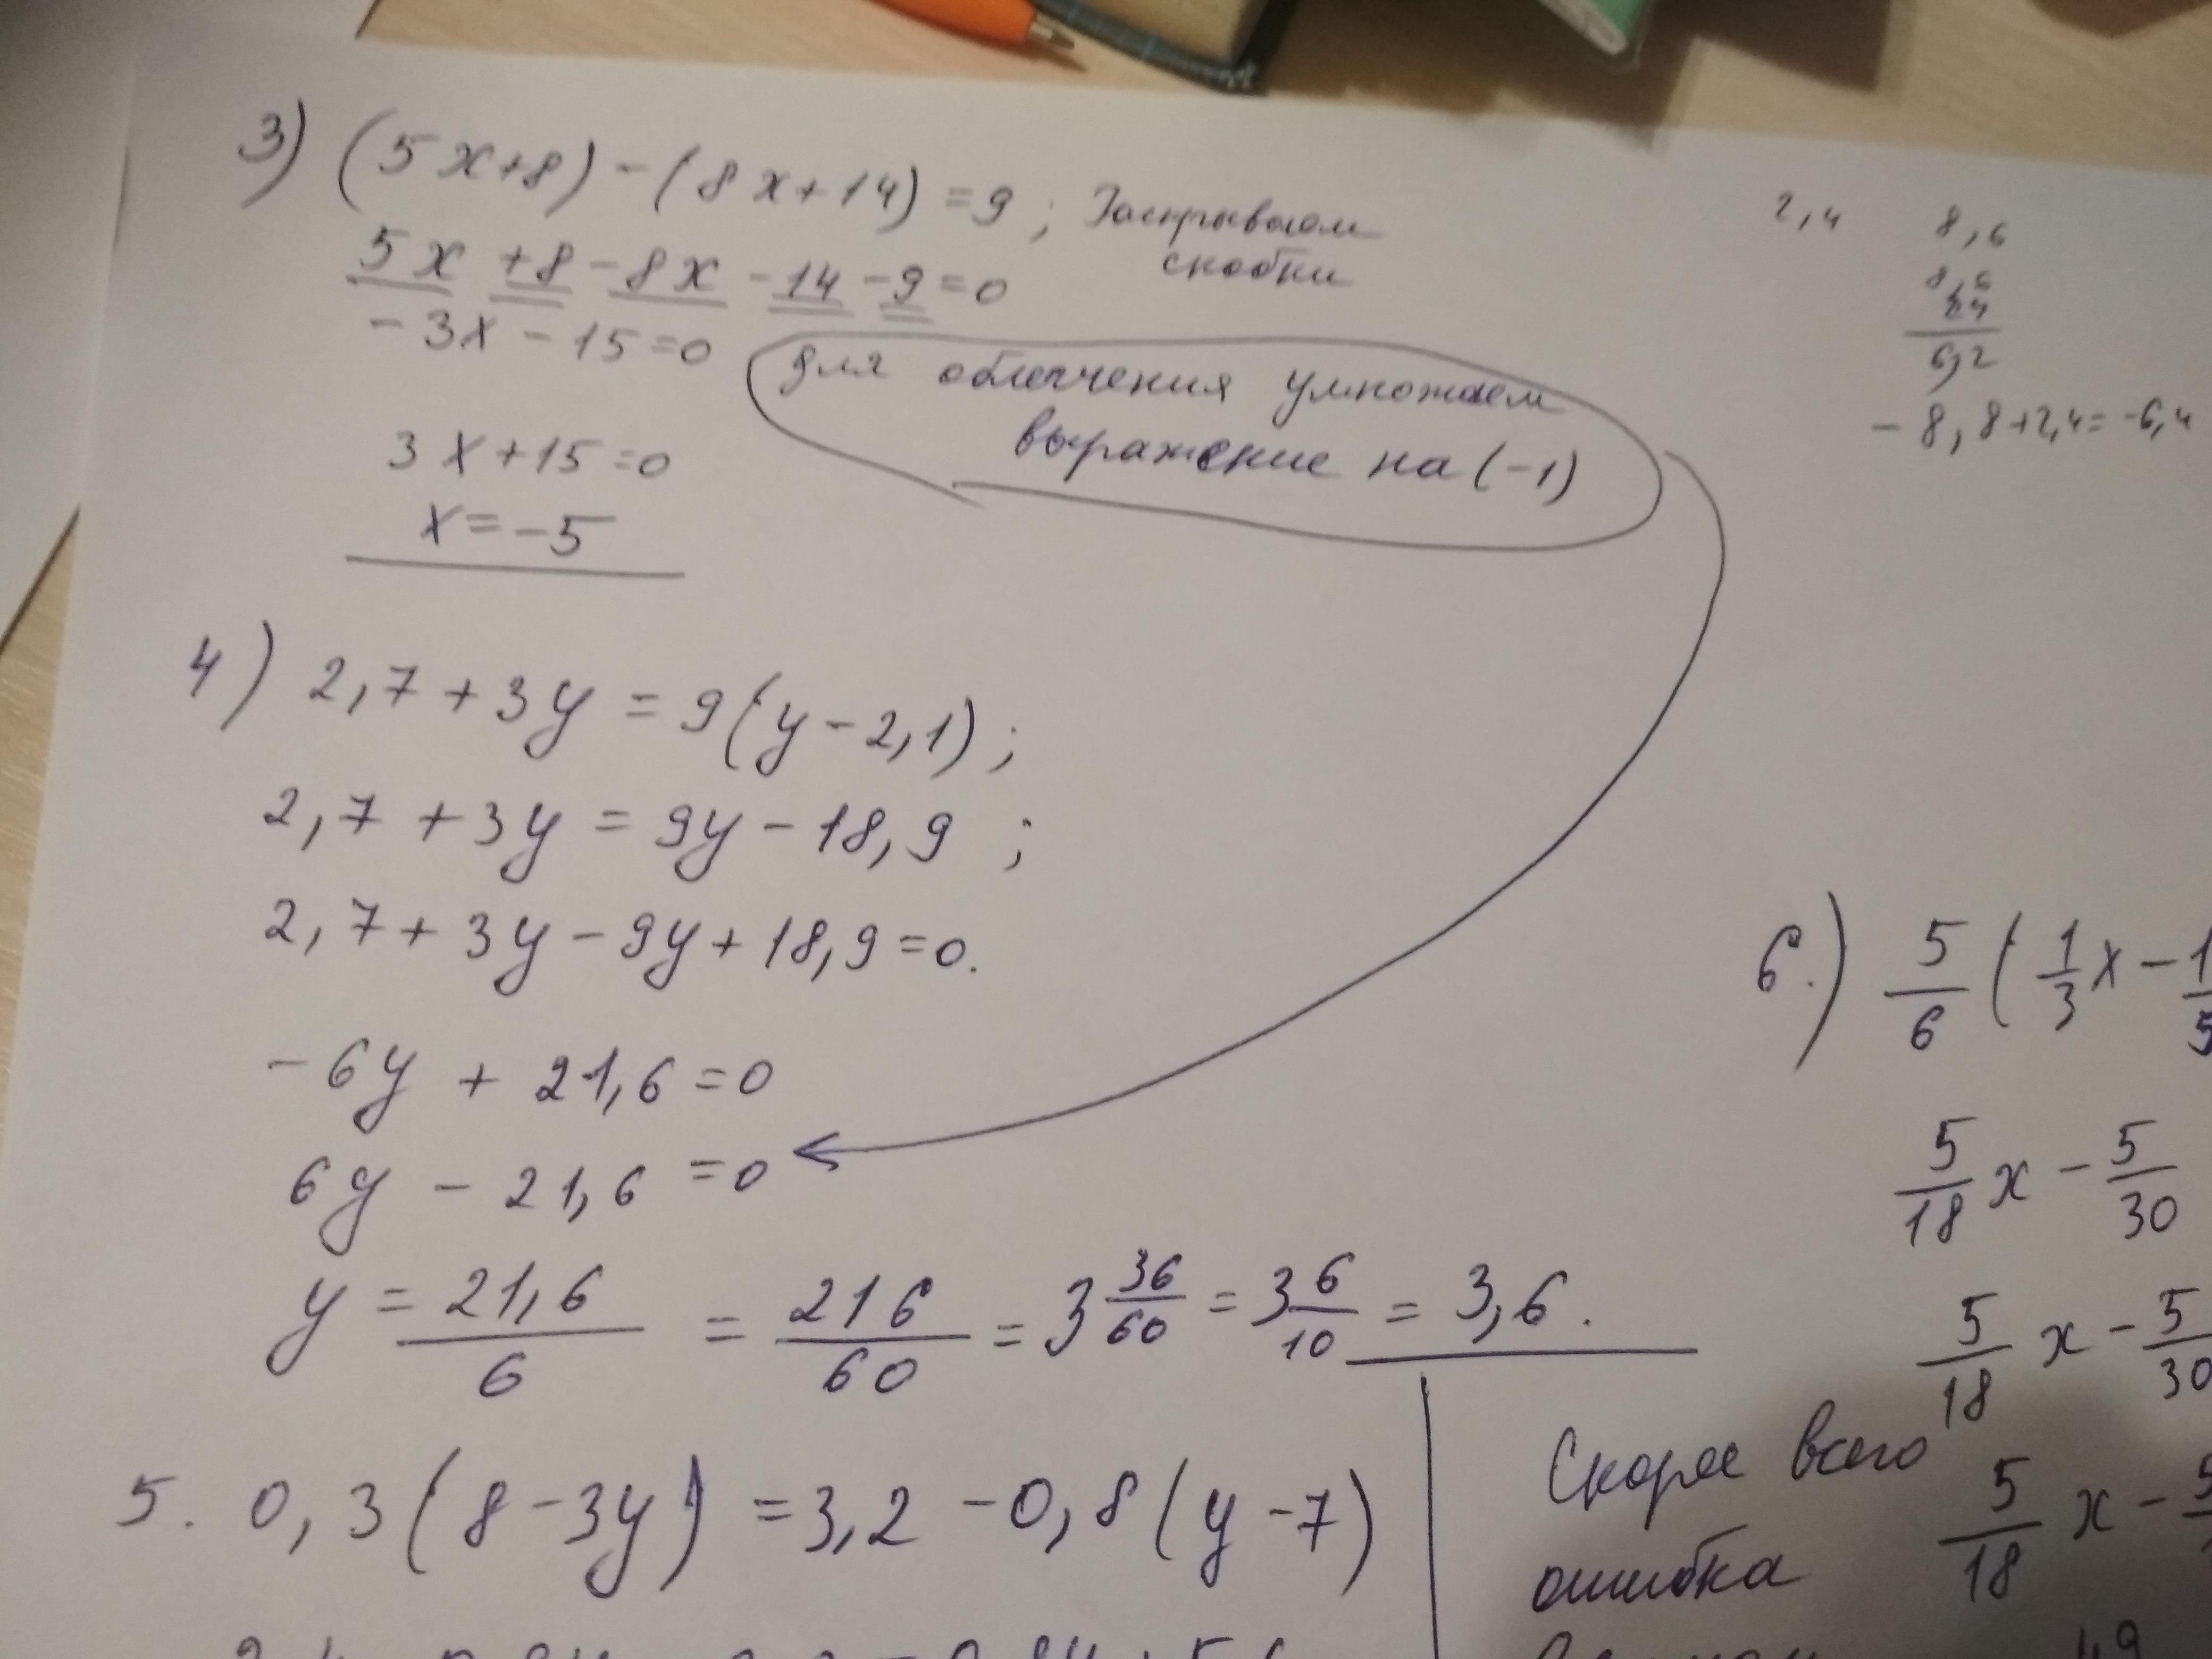 3) (5x+8)-(8x+14)=9; Раскрываем
скобки
5x+8-8x-14-9=0
-3x-15=0
для облегчения умножаем
выражение на (-1)
3x+15=0
x=-5
2,4 8,6
6,2
-8,8+2,4=-6,4
4) 2,7+3y=9(y-2,1);
2,7+3y=9y-18,9;
2,7+3y-9y+18,9=0.
-6y+21,6=0
6y-21,6=0
y=21,6/6=216/60=3 36/60=3 6/10=3,6.
5. 0,3(8-3y)=3,2-0,8(y-7)
6.) 5/6(1/3x-1/5
5/18x-5/30
5/18x-5/30
5/18x-5
Скорее всего
ошибка